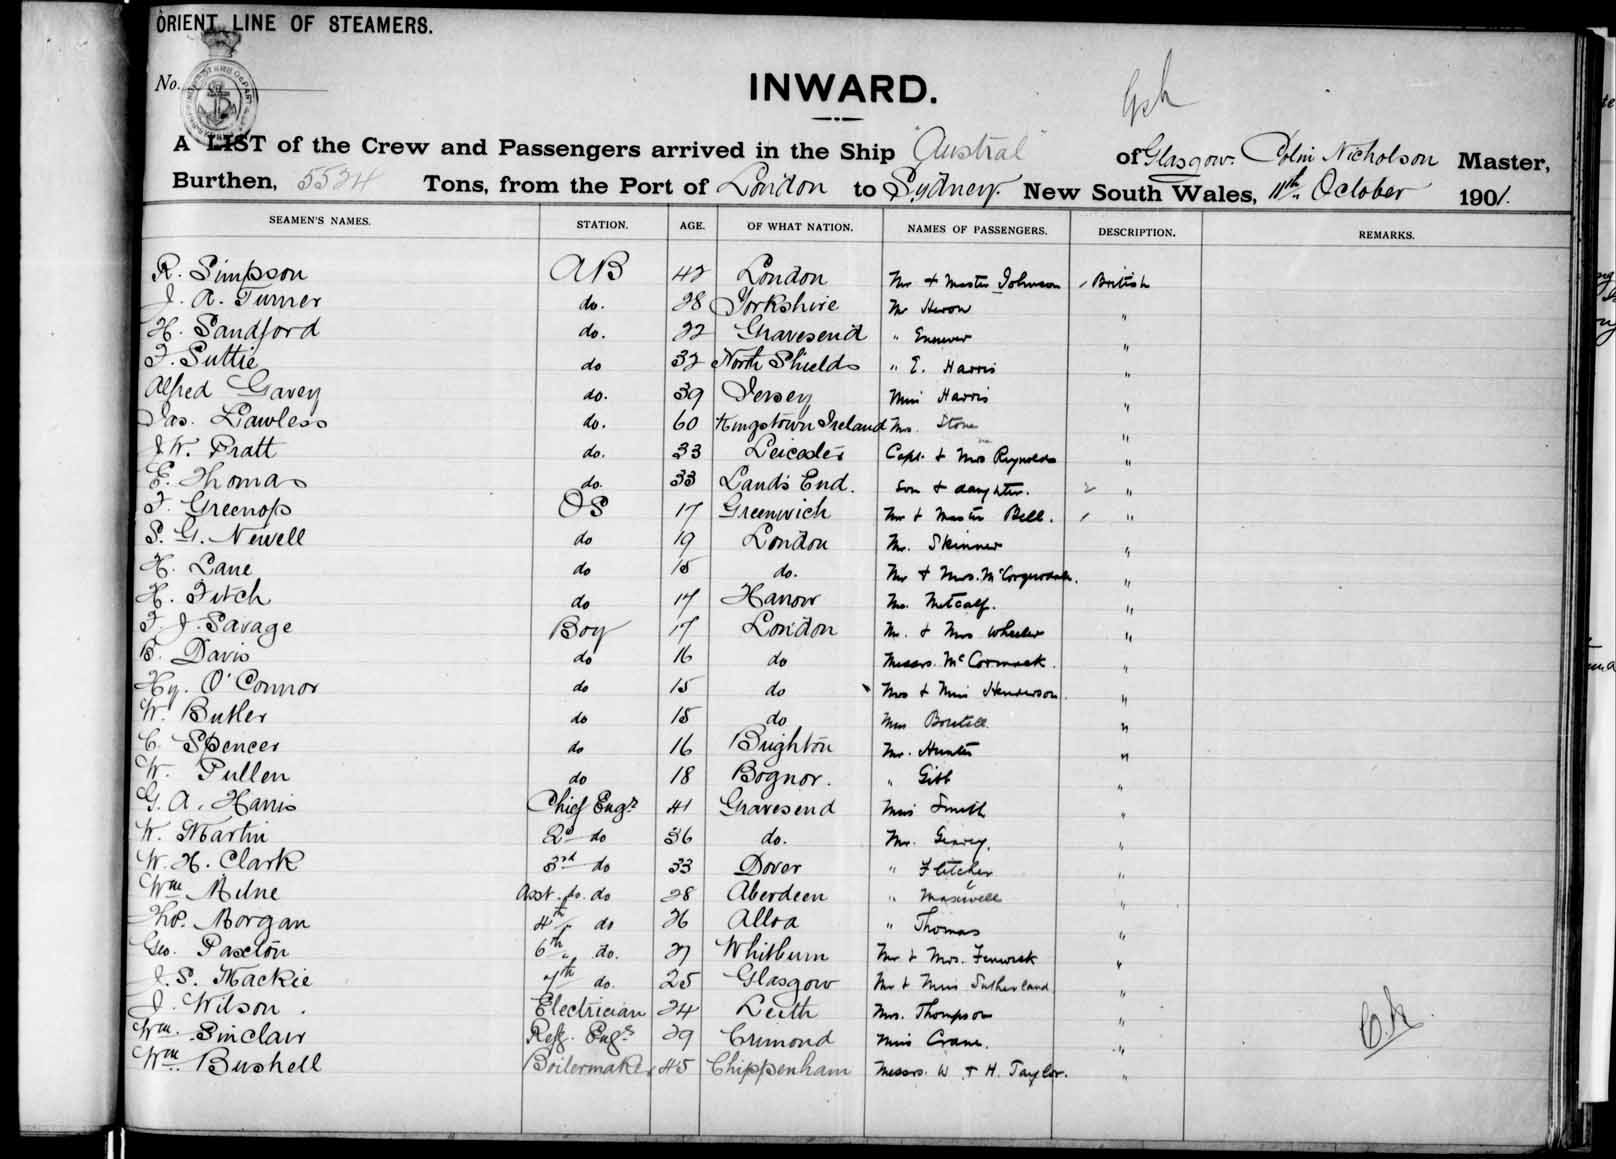 ORIENT LINE OF STEAMERS.
No.
INWARD.
A LIST of the Crew and Passengers arrived in the Ship "Austral" of Glasgow. Colin Nicholson Master,
Burthen, 5524 Tons, from the Port of London to Sydney. New South Wales, 11th October 1901.
SEAMEN'S NAMES. STATION. AGE. OF WHAT NATION. NAMES OF PASSENGERS. DESCRIPTION. REMARKS.
R. Simpson AB 42 London Mr & Master Johnson 1 British
J. A. Turner do. 28 Yorkshire Mr Heron "
H. Sandford do. 22 Gravesend " "
F. Suttie do 32 North Shields " E. Harris "
Alfred Gavey do. 39 Jersey Miss Harris "
Jas. Lawless do. 60 Kingstown Ireland Mrs. Stone "
J. W. Pratt do. 33 Leicester Capt. & Mrs Reynolds "
E. Thomas do. 33 Land's End. Son & daughter. 2 "
F. Greenops OS 17 Greenwich Mr & Master Bell. 1 "
S. G. Newell do 19 London Mr. Skinner "
H. Lane do 15 do. Mr & Mrs. "
H. Fitch do 17 Harrow Mr. Metcalf. "
F. J. Savage Boy 17 London Mr. & Mrs Wheeler "
B. Davis do 16 do Messrs. McCormack. "
Hy. O'Connor do 15 do Mrs & Miss Henderson. "
W. Butler do 15 do "
C. Spencer do 16 Brighton Mr. Hunter "
W. Pullen do 18 Bognor. " Gibb "
G. A. Harris Chief Engr 41 Gravesend Miss Smith "
W. Martin 2d do 36 do. Mr. "
W. H. Clark 3rd do 33 Dover " Fletcher "
Wm Milne Asst. do. do 28 Aberdeen " Maxwell "
Thos. Morgan 4th do 26 Alloa " Thomas "
Geo. Paxton 6th do. 27 Whitburn Mr & Mrs. Fenwick "
J. S. Mackie 7th do. 25 Glasgow Mr & Miss Sutherland "
J. Wilson. Electrician 24 Leith Mrs. Thompson "
Wm. Sinclair Refg. Engr 29 Crimond Miss Crane. "
Wm. Bushell Boilermaker 45 Chippenham Messrs. W. & H. Taylor. "